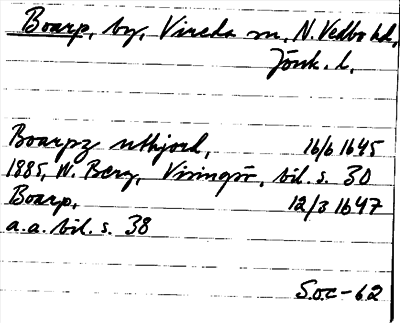 Boarp, by, Vireda sn, N. Vedbo hd,
Jönk. l.
Boarpz uthjord, 16/6 1645
1885, W. Berg, Visingsö, bil. s. 30
Boarp, 12/3 1647
a.a. bil. s. 38
S.o.c-62